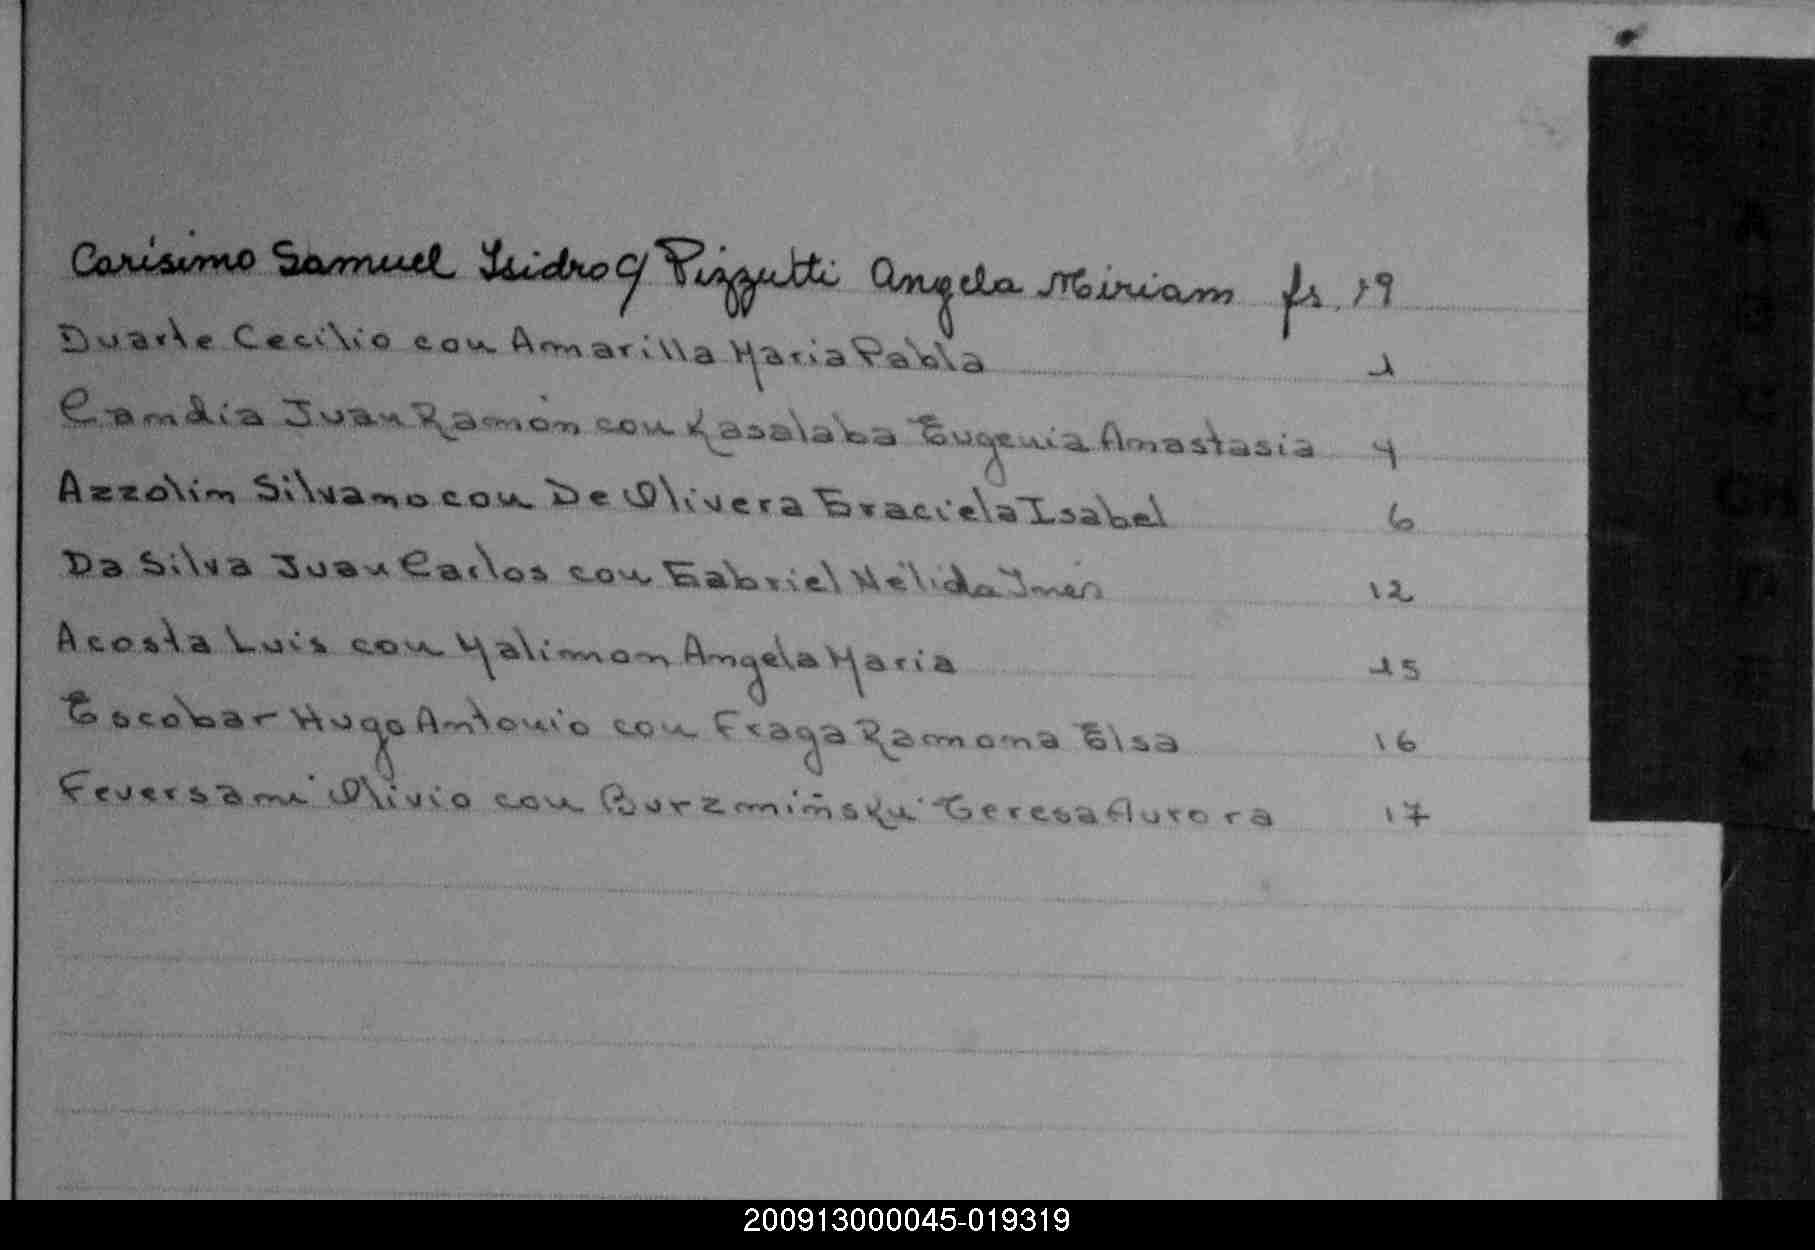 Carísimo Samuel Isidro c/ Pizzutti Angela Miriam fs. 19
Duarte Cecilio con Amarilla Maria Pabla 1
Candia Juan Ramón con Kasalaba Eugenia Anastasia 4
Azzolin Silvano con De Olivera Graciela Isabel 6
Da Silva Juan Carlos con Gabriel Nélida Inés 12
Acosta Luis con Malimon Angela Maria 15
Escobar Hugo Antonio con Fraga Ramona Elsa 16
Feversani Olivio con Burzmiñski Teresa Aurora 17
200913000045-019319